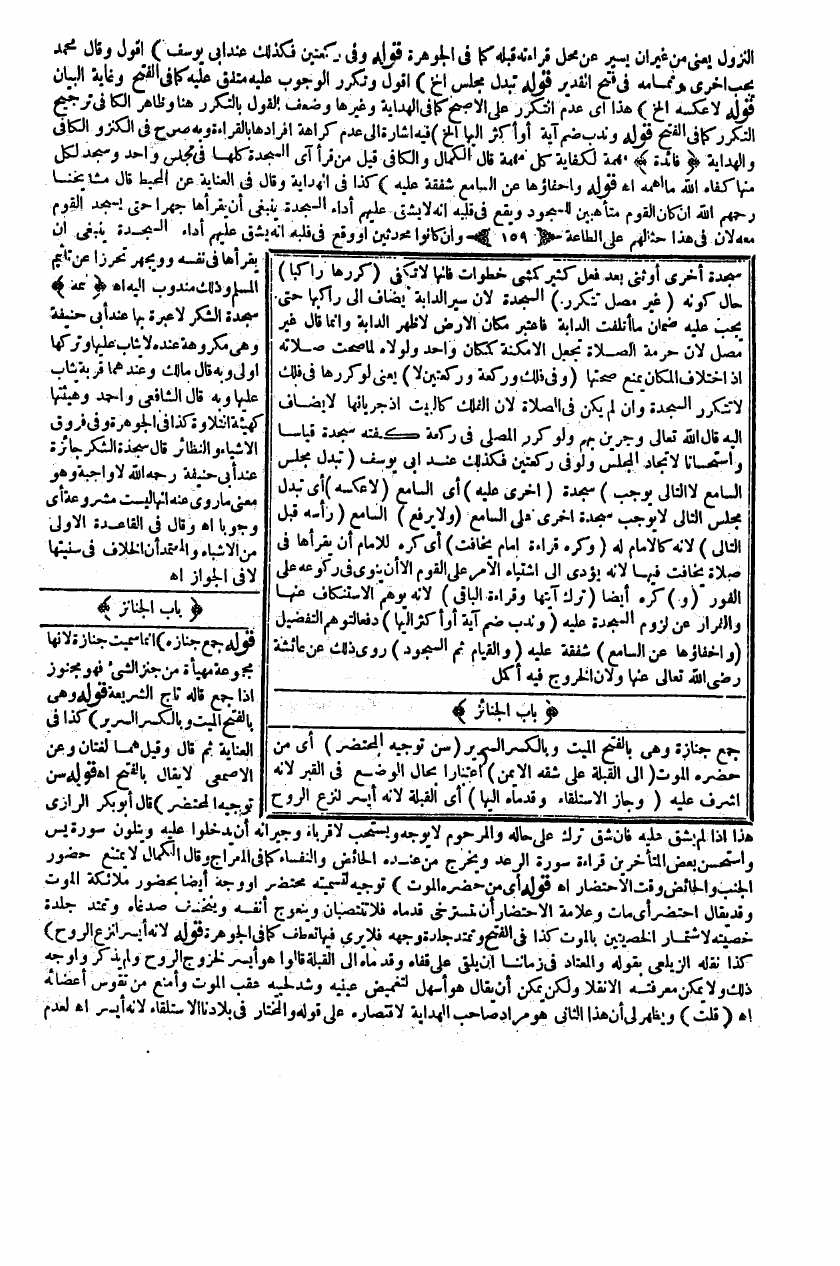 النزول يعنى من غير ان يسير عن محل قراءته قبله كما فى الجوهرة قوله وفى ركعتين فكذلك عند ابى يوسف ) اقول وقال محمد
يجب اخرى وتمامه فى فتح القدير قوله تبدل مجلس الخ ) اقول وتكرر الوجوب عليه متفق عليه كما فى الفتح وغاية البيان
قوله لا عكسه الخ ) هذا أى عدم التكرر على الاصح كما فى الهداية وغيرها وضعف القول بالتكرر هنا وظاهر الكافى ترجيح
التكرر كما فى الفتح قوله وندب ضم آية أو أكثر اليها الخ ) فيه اشارة الى عدم كراهة افرادها بالقراءة وبه صرح فى الكنز والكافى
والهداية ﴿ فائدة ﴾ مهمة لكفاية كل مهمة قال الكمال والكافى قيل من قرأ آى السجدة كلها فى مجلس واحد وسجد لكل
منها كفاه الله ما أهمه اه قوله واخفاؤها عن السامع شفقة عليه ) كذا فى الهداية وقال فى العناية عن المحيط قال مشايخنا
رحمهم الله ان كان القوم متأهبين للسجود ويقع فى قلبه انه لا يشق عليهم أداء السجدة ينبغى أن يقرأها جهرا حتى يسجد القوم
معه لان فى هذا حثالهم على الطاعة ﴿ ١٥٩ ﴾ وان كانوا محدثين او وقع فى قلبه انه يشق عليهم أداء السجدة ينبغى ان
يقرأها فى نفسه وو يجهر تحرزا عن تأثيم
المسلم وذلك مندوب اليه اه ﴿ تتمة ﴾
سجدة الشكر لا عبرة بها عند أبى حنيفة
وهى مكروهة عنده لا يثاب عليها وتركها
اولى وبه قال مالك وعندهما قربة يثاب
عليها وبه قال الشافعى واحمد وهيئتها
كهيئة التلاوة كذا فى الجوهرة وفى فروق
الاشباه والنظائر قال سجدة الشكر جائزة
عند أبى حنيفة رحمه الله لا واجبة وهو
معنى ماروى عنه انها ليست مشروعة أى
وجوبا اه وقال فى القاعدة الاولى
من الاشباه والمعتمد أن الخلاف فى سنيتها
لا فى الجواز اه
﴿ باب الجنائز ﴾
قوله جمع جنازه ) انما سميت جنازة لانها
مجموعة مهيأة من جنز الشئ فهو مجنوز
اذا جمع قاله تاج الشريعة قوله وهى
بالفتح الميت وبالكسر السرير ) كذا فى
العناية ثم قال وقيل هما لغتان وعن
الاصمعى لا يقال بالفتح اه قوله سن
توجيه المحتضر ) قال أبو بكر الرازى
سجدة أخرى أو ثنى بعد فعل كثير كمشى خطوات فانها لا تكفى ( كررها راكبا )
حال كونه ( غير مصل تتكرر ) السجدة لان سير الدابة يضاف الى راكبها حتى
يجب عليه ضمان ما أتلفت الدابة فاعتبر مكان الارض لا ظهر الدابة وانما قال غير
مصل لان حرمة الصلاة تجعل الامكنة كمكان واحد ولولاه لما صحت صلاته
اذ اختلاف المكان يمنع صحتها ( وفى ذلك وركعة وركعتين لا ) يعنى لو كررها فى فلك
لا تتكرر السجدة وان لم يكن فى الصلاة لان الفلك كالبيت اذ جريانها لا يضاف
اليه قال الله تعالى وجرين بهم ولو كرر المصلى فى ركعة كفته سجدة قياسا
واستحسانا لاتحاد المجلس ولو فى ركعتين فكذلك عند ابى يوسف ( تبدل مجلس
السامع لا التالى يوجب ) سجدة ( اخرى عليه ) أى السامع ( لا عكسه ) أى تبدل
مجلس التالى لا يوجب سجدة اخرى على السامع ( ولا يرفع ) السامع ( رأسه قبل
التالى ) لانه كالامام له ( وكره قراءة امام يخافت ) أى كره للامام أن يقرأها فى
صلاة يخافت فيها لانه يؤدى الى اشتباه الأمر على القوم الا أن ينوى فى ركوعه على
الفور ( و ) كره أيضا ( ترك آيتها وقراءة الباقى ) لانه يوهم الاستنكاف عنها
والفرار عن لزوم السجدة عليه ( وندب ضم آية أو أكثر اليها ) دفعا لتوهم التفضيل
( واخفاؤها عن السامع ) شفقة عليه ( والقيام ثم السجود ) روى ذلك عن عائشة
رضى الله تعالى عنها ولان الخروج فيه أكمل
﴿ باب الجنائز ﴾
جمع جنازة وهى بالفتح الميت وبالكسر السرير ( سن توجيه المحتضر ) أى من
حضره الموت ( الى القبلة على شقه الايمن ) اعتبارا بحال الوضع فى القبر لانه
اشرف عليه ( وجاز الاستلقاء وقدماه اليها ) أى القبلة لانه أيسر لنزع الروح
هذا اذا لم يشق عليه فان شق ترك على حاله والمرحوم لا يوجه ويستحب لاقرباء وجيرانه أن يدخلوا عليه ويتلون سورة يس
واستحسن بعض المتأخرين قراءة سورة الرعد ويخرج من عنده الحائض والنفساء كما فى المعراج وقال الكمال لا يمتنع حضور
الجنب والحائض وقت الاحتضار اه قوله أى من حضره الموت ) توجيه لتسميته محتضر او وجه أيضا بحضور ملائكة الموت
وقد يقال احتضر أى مات وعلامة الاحتضار أن تسترخى قدماه فلا تنتصبان وينعوج أنفه وينخسف صدغاه وتمتد جلدة
خصيته لاشتمار الخصيتين بالموت كذا فى الفتح وتمتد جلدة وجهه فلا يرى فيها تعطف كما فى الجوهرة قوله لانه أيسر لنزع الروح )
كذا نقله الزيلعى بقوله والمعتاد فى زماننا ان يلقى على قفاه وقدماه الى القبلة قالوا هو أيسر لخروج الروح ولم يذكر وا وجه
ذلك ولا يمكن معرفته الا نقلا ولكن يمكن أن يقال هو أسهل لتغميض عينيه وشد لحييه عقب الموت وأمنع من تقوس أعضائه
اه ( قلت ) ويظهر لى أن هذا الثانى هو مراد صاحب الهداية لاقتصاره على قوله والمختار فى بلادنا الاستلقاء لانه أيسر اه لعدم